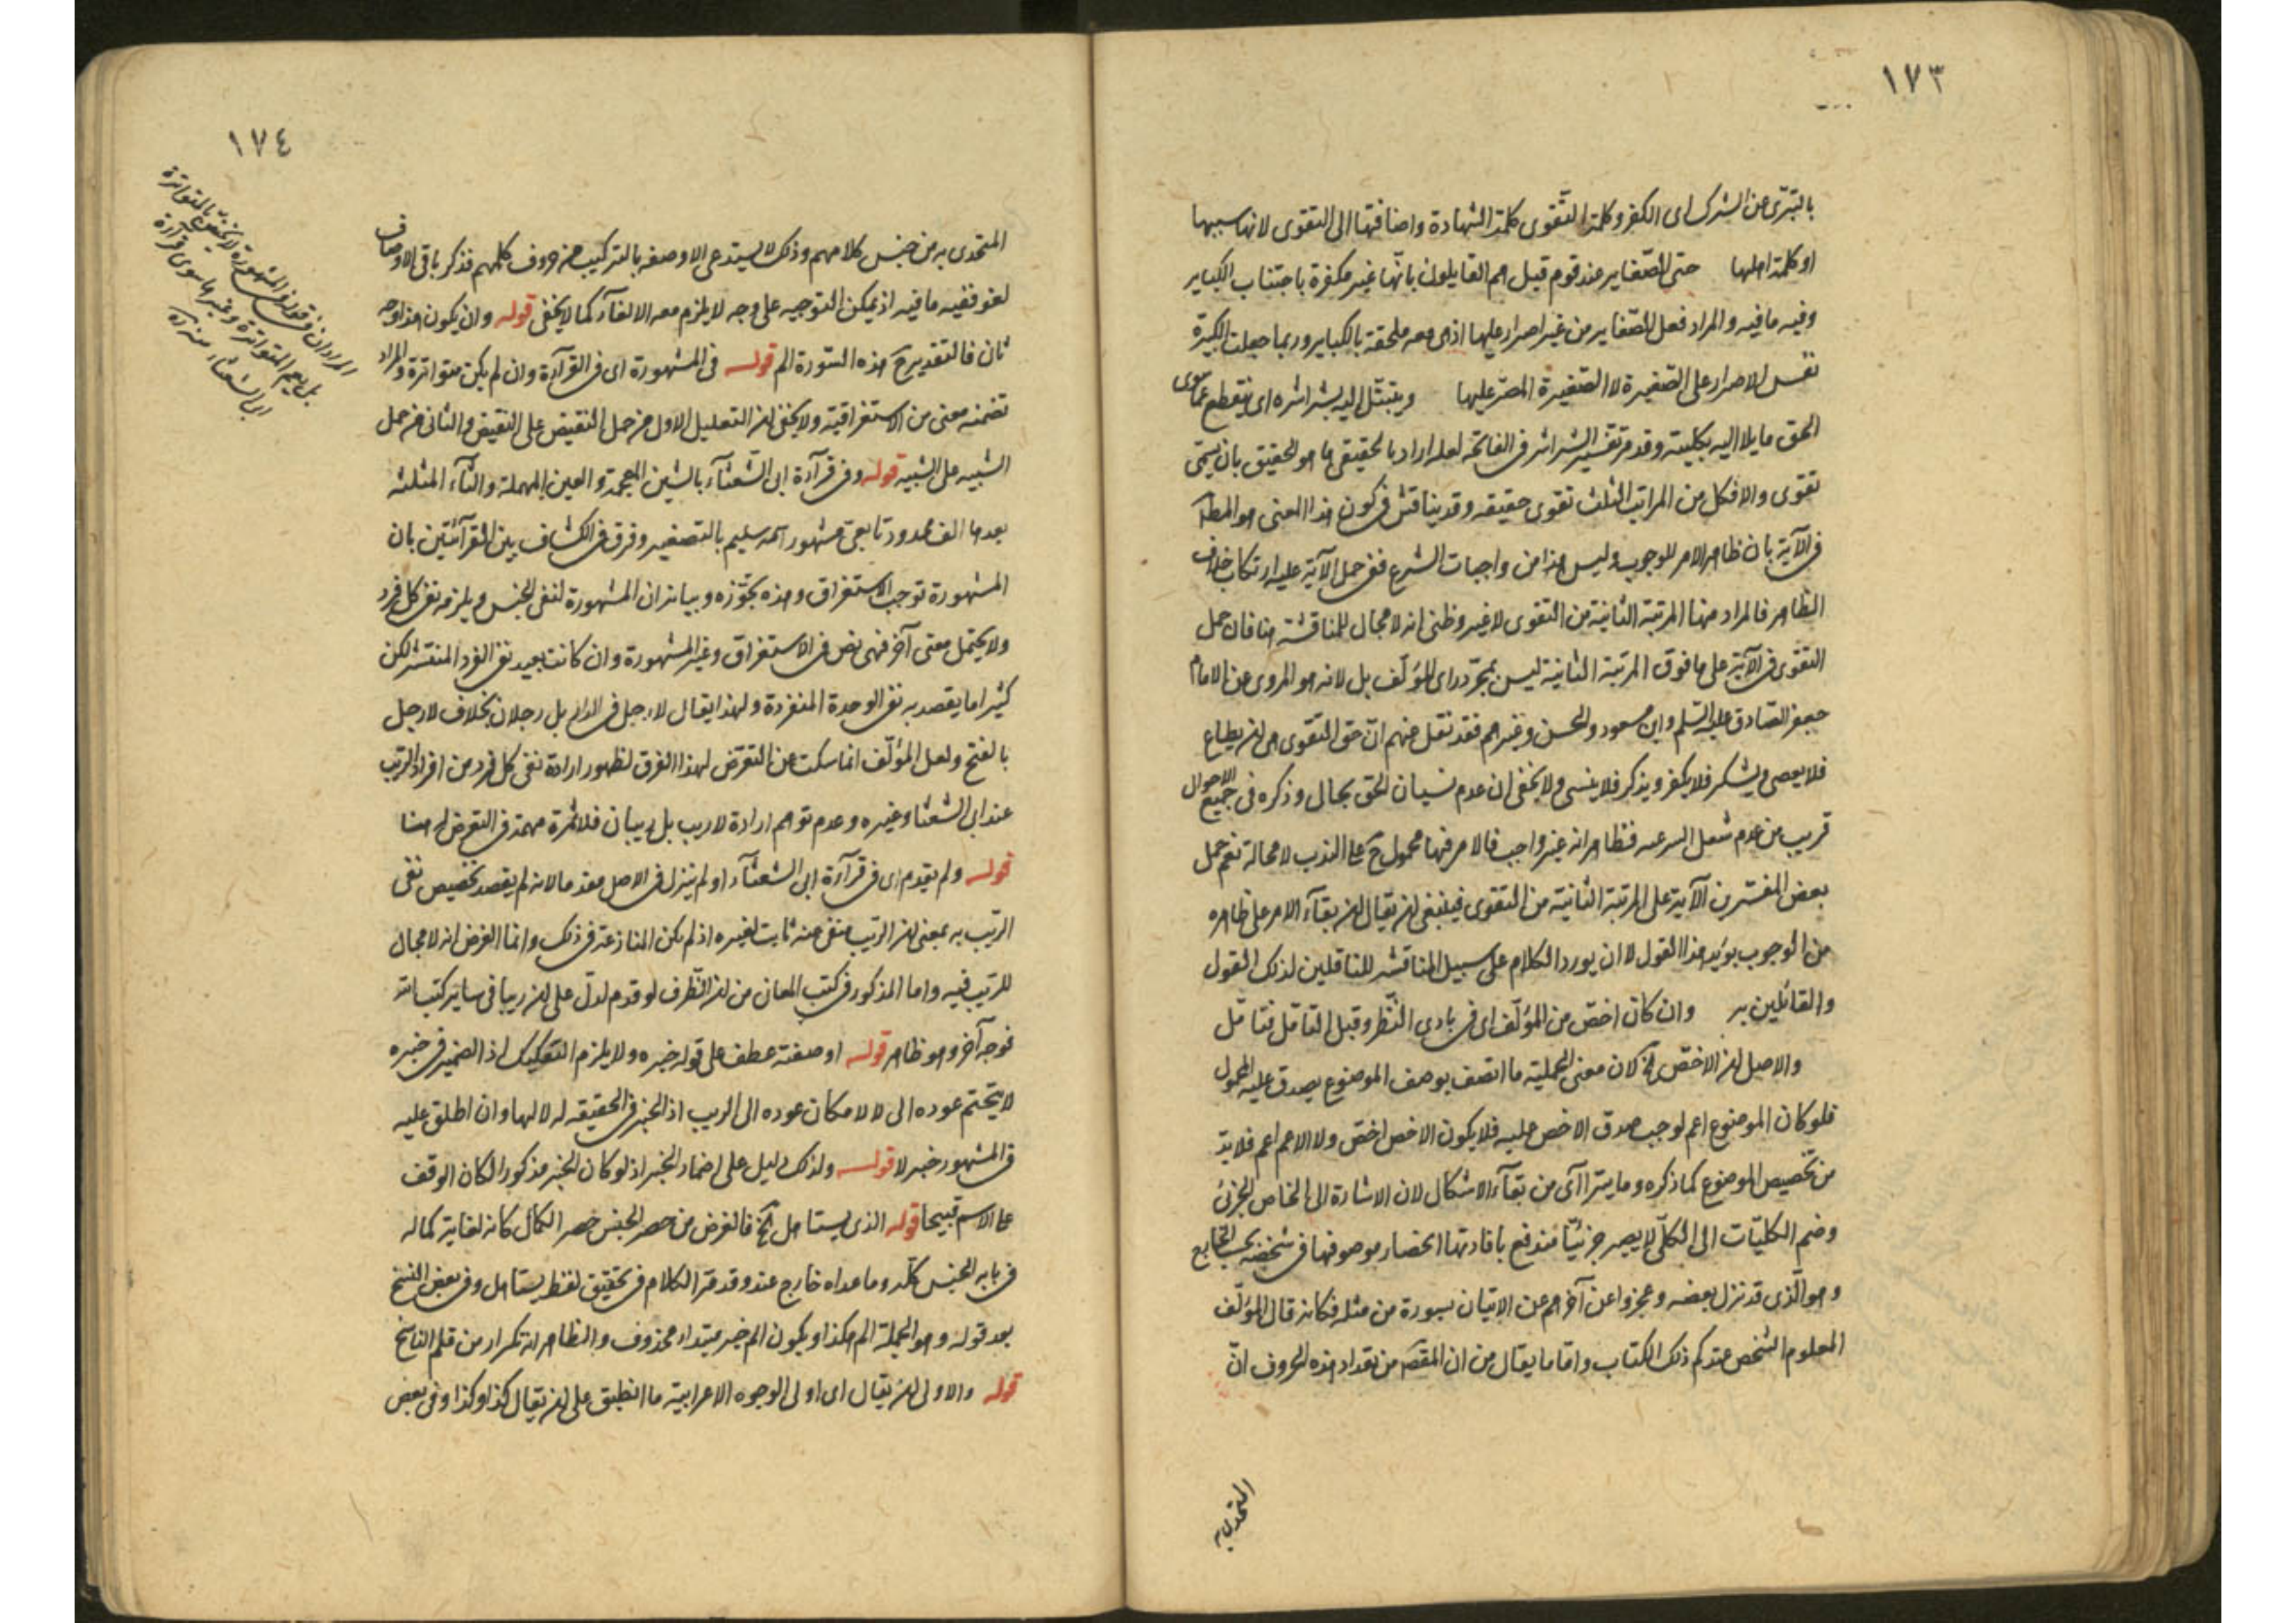 ١٧٣
بالتبرّى عن الشرك اى الكفر وكلمة التقوى كلمة الشهادة واضافتها الى التقوى لانها سببها
او كلمة اهلها حتى الصّغاير عند قوم قيل هم القايلون بانّها غير مكفرة باجتناب الكباير
وفيه ما فيه والمراد فعل الصّغاير من غير اصرار عليها اذ هى معه ملحقة بالكباير وربما جعلت الكبيرة
نفس الاصرار على الصّغيرة لا الصّغيرة المصرّ عليها ويتبتّل اليه بشراشره اى ينقطع عمّا سوى
الحق مايلا اليه بكليته وقد مر تفسير الشراشر فى الفاتحة لعله اراد بالحقيقى ما هو الحقيق بان يسمّى
تقوى والا فكل من المراتب الثلث تقوى حقيقه وقد يناقش فى كون هذا المعنى هو المط
فى الآية بان ظاهر الامر للوجوب وليس هذا من واجبات الشرع ففى حمل الآية عليه ارتكاب خلاف
الظاهر فالمراد منها المرتبة الثانية من التقوى لا غير وظنى انه لا مجال للمناقشة هنا فان حمل
التقوى فى الآية على ما فوق المرتبة الثانية ليس بمجرّد راى المؤلّف بل لانه هو المروى عن الامام
جعفر الصّادق عليه السّلم وابن مسعود والحسن وغيرهم فقد نقل عنهم انّ حق التقوى هى ان يطاع
فلا يعصى ويشكر فلا يكفر ويذكر فلا ينسى ولا يخفى ان عدم نسيان الحق بحال وذكره فى جميع الاحوال
قريب من عدم شغل السر عنه فظاهر انه غير واجب فالامر فيها محمول ح على الندب لا محالة نعم حمل
بعض المفسرين الآية على المرتبة الثانية من التقوى فينبغى ان يقال ان بقآء الامر على ظاهره
من الوجوب يؤيد هذا القول لا ان يورد الكلام على سبيل المناقشه للناقلين لذلك القول
والقائلين به وان كان اخصّ من المؤلّف اى فى بادى النّظر وقبل التامّل فتامّل
والاصل ان الاخصّ الخ لان معنى الحملية ما اتصف بوصف الموضوع يصدق عليه المحمول
فلو كان الموضوع اعم لوجب صدق الاخص عليه فلا يكون الاخص اخصّ ولا الاعم اعم فلا بدّ
من تخصيص الموضوع كما ذكره وما يترا آى من بقآء الاشكال لان الاشارة الى الخاص الجزئى
وضم الكليّات الى الكلّى لا يصير جزئيّا مندفع بافادتها انحصار موصوفها فى شخصه بحسب الخارج
وهو الّذى قد نزل بعضه وعجزوا عن آخرهم عن الاتيان بسورة من مثله فكانه قال المؤلّف
المعلوم الشخص عندكم ذلك الكتاب واما ما يقال من ان المقصد من تعداد هذه الحروف انّ
المتحدى به
١٧٤
المتحدى به من جنس كلامهم وذلك لا يستدعى الا وصفه بالتركيب من حروف كلامهم فذكر باقى الاوصاف
لغو ففيه ما فيه اذ يمكن التوجيه على وجه لا يلزم معه الالغآء كما لا يخفى قوله وان يكون هذا وجه
ثان فالتقدير ح هذه السّورة الم قوله فى المشهورة اى فى القرآءة وان لم يكن متواترة والمراد
تضمنه معنى من الاستغراقية ولا يخفى ان التعليل الاول من حمل النقيض على النقيض والثانى من حمل
الشبيه على الشبيه قوله وفى قرآءة ابى الشّعثآء بالشين المعجمة والعين المهملة والثآء المثلثه
بعدها الف ممدود تابعى مشهور اسمه سليم بالتصغير وفرق فى الكشاف بين القرآئتين بان
المشهورة توجب الاستغراق وهذه تجوّزه وبيانه ان المشهورة لنفى الجنس ويلزمه نفى كل فرد
ولا يحتمل معنى آخر فهى نص فى الاستغراق وغير المشهورة وان كانت بعيد نفى الفرد المنتشر لكن
كثيرا ما يقصد به نفى الوحدة المنفردة ولهذا يقال لا رجل فى الدار بل رجلان بخلاف لا رجل
بالفتح ولعل المؤلّف انما سكت عن التعرّض لهذا الفرق لظهور ارادة نفى كل فرد من افراد الريب
عند ابى الشعثا وغيره وعدم توهم ارادة لا ريب بل ريبان فلا ثمرة مهمة فى التعرض له هنا
قوله ولم يقدم اى فى قرآءة ابى الشعثآء او لم ينزل فى الاصل مقدما لانه لم يقصد تخصيص نفى
الرّيب به بمعنى ان الريب منفى عنه ثابت لغيره اذ لم يكن المنازعة فى ذلك وانما الغرض انه لا مجال
للريب فيه واما المذكور فى كتب المعانى من ان الظّرف لو قدم لدلّ على ان ريبا فى ساير كتب الله
فوجه آخر وهو ظاهر قوله او صفته عطف على قوله خبره ولا يلزم التفكيك اذ الضمير فى خبره
لا يتحتم عوده الى لا لامكان عوده الى الريب اذ الخبر فى الحقيقه له لا لها وان اطلق عليه
فى المشهور خبر لا قوله ولذلك دليل على اضمار الخبر اذ لو كان الخبر مذكورا لكان الوقف
على الاسم قبيحا قوله الذى يستاهل الخ فالغرض من حصر الجنس حصر الكمال كانه لغاية كماله
فى بابه الجنس كلّه وما عداه خارج عنه وقد مرّ الكلام فى تحقيق لفظ يستاهل وفى بعض النسخ
بعد قوله وهو الجملة الم هكذا ويكون الم خبر مبتداء محذوف والظاهر انه تكرار من قلم الناسخ
قوله والاولى ان يقال اى اولى الوجوه الاعرابية ما انطبق على ان يقال كذا وكذا وفى بعض